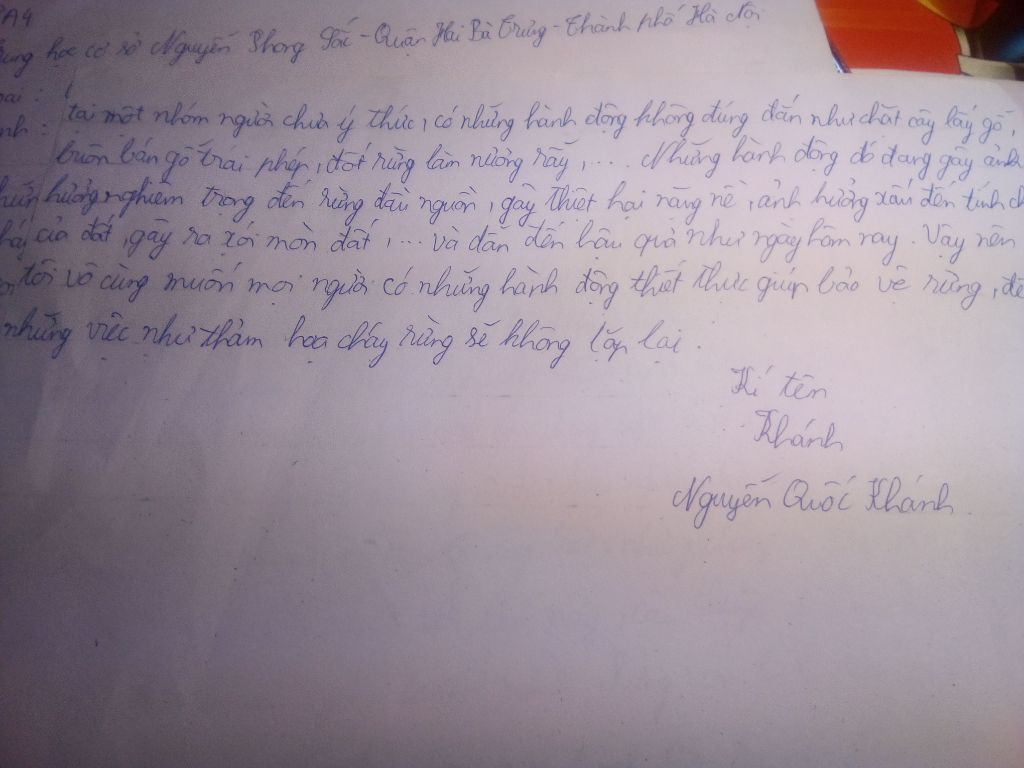 A4
học cơ sở Nguyễn Phong Sắc - Quận Hai Bà Trưng - Thành phố Hà Nội
tại một nhóm người chưa ý thức, có những hành động không đúng đắn như chặt cây lấy gỗ,
buôn bán gỗ trái phép, đốt rừng làm nương rẫy, ... Những hành động đó đang gây ảnh
hưởng nghiêm trọng đến rừng đầu nguồn, gây thiệt hại nặng nề, ảnh hưởng xấu đến tính
của đất, gây ra xói mòn đất, ... và dẫn đến hậu quả như ngày hôm nay. Vậy nên
tôi vô cùng muốn mọi người có những hành động thiết thực giúp bảo vệ rừng, để
những việc như thảm họa cháy rừng sẽ không lặp lại.
Kí tên
Khánh
Nguyễn Quốc Khánh